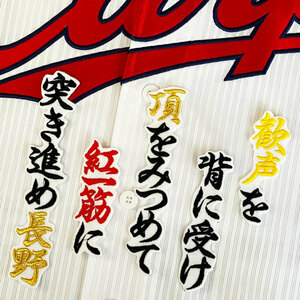 歓声を
背に受け
頂をみつめて
紅一筋に
突き進め長野